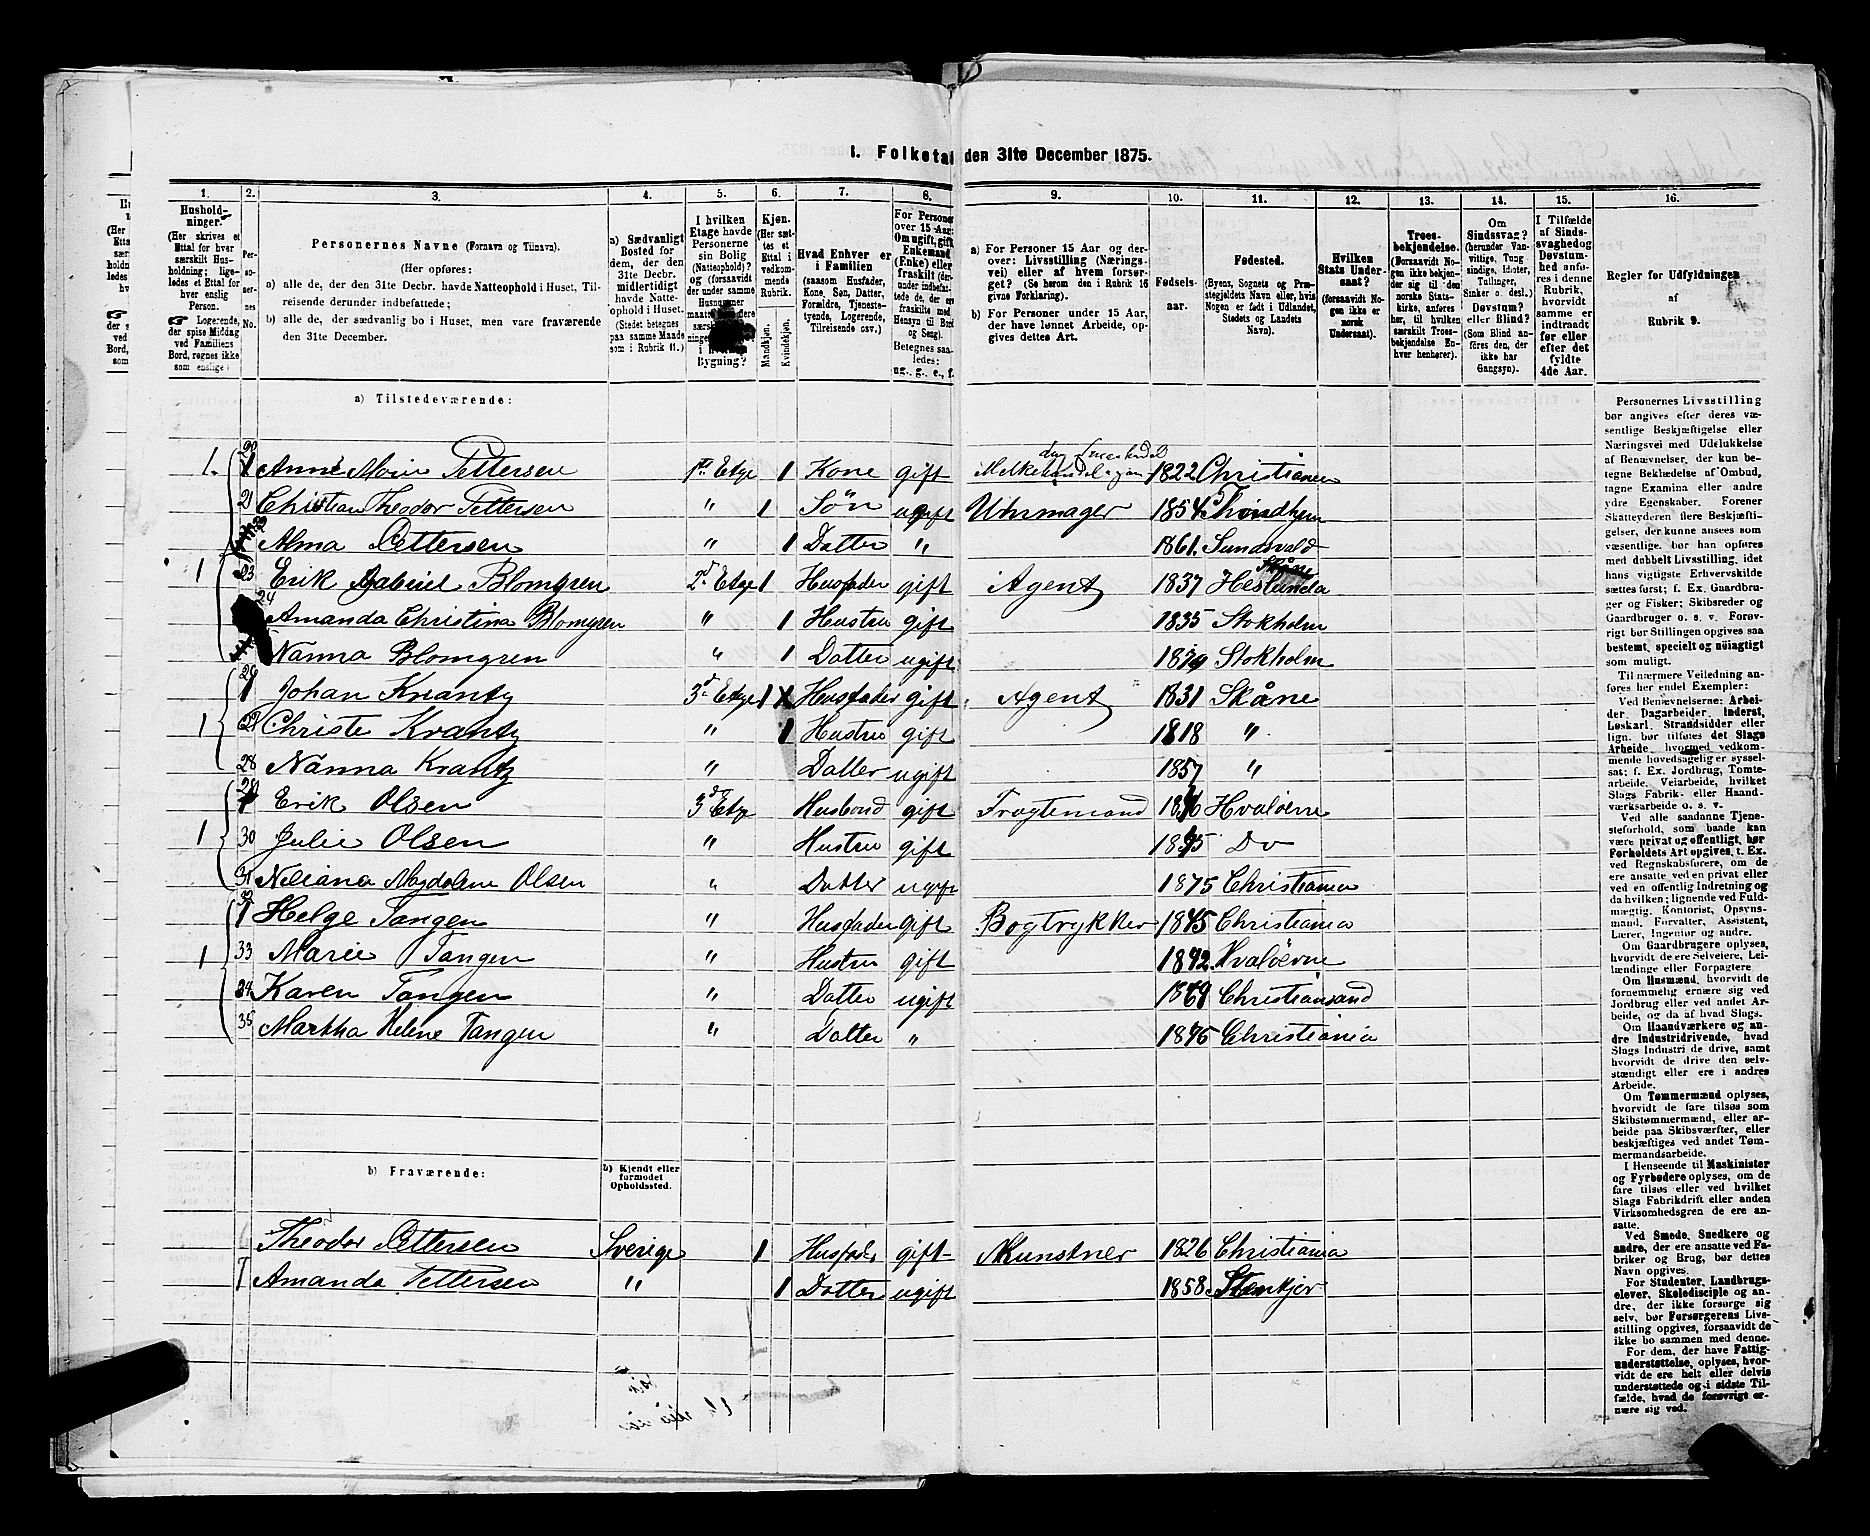 1. Folketal den 31te December 1875.
1. 2. 3. 4. 5. 6. 7. 8. 9. 10. 11. 12. 13. 14. 15. 16.
Husholdninger.
(Her skrives et Ettal for hver særskilt Husholdning; ligeledes et Ettal for hver enslig Person.
☞ Logerende, der spise Middag ved Familiens Bord, regnes ikke som enslige)
Personernes No.
Personernes Navne (Fornavn og Tilnavn).
(Her opføres:
a) alle de, der den 31te Decbr. havde Natteophold i Huset, Tilreisende derunder indbefattede;
b) alle de, der sædvanlig bo i Huset, men vare fraværende den 31te December.
a) Sædvanligt Bosted for dem, der den 31te Decbr. midlertidigt havde Natteophold i Huset.
(Stedet betegnes paa samme Maade som i Rubrik 11.)
I hvilken Etage havde Personerne sin Bolig (Natteophold)? og (forsaavidt der under samme Husnummer
Bygning?
Kjøn.
(Her sættes et Ettal i vedkommende Rubrik.
Mandkjøn. Kvindekjøn.
Hvad Enhver er i Familien
(saasom Husfader, Kone, Søn, Datter, Forældre, Tjenestetyende, Logerende, Tilreisende osv.)
For Personer over 15 Aar: Om ugift, gift, Enkemand (Enke) eller fraskilt (derunder indbefattede de, der ere fraskilte med Hensyn til Bord og Seng).
Betegnes saaledes: ug., g., e., f.
a) For Personer 15 Aar og derover: Livsstilling (Næringsvei) eller af hvem forsørget? (Se herom den i Rubrik 16 givne Forklaring).
b) For Personer under 15 Aar, der have lønnet Arbeide, opgives dettes Art.
Fødselsaar.
Fødested.
(Byens, Sognets og Præstegjeldets Navn eller, hvis Nogen er født i Udlandet, Stedets og Landets Navn).
Hvilken Stats Undersaat?
(forsaavidt Nogen ikke er norsk Undersaat).
Troesbekjendelse.
(Forsaavidt Nogen ikke bekjender sig til den norske Statskirke, anføres her, til hvilken særskilt Troesbekjendelse Enhver henhører).
Om Sindssvag? (herunder Vanvittige, Tungsindige, Idioter, Tullinger, Sinker o. desl.) Døvstum? eller Blind?
(Som Blind anføres den, der ikke har Gangsyn).
I Tilfælde af Sindssvaghed og Døvstumhed anføres i denne Rubrik, hvorvidt samme er indtraadt før eller efter det fyldte 4de Aar.
Regler for Udfyldningen
af
Rubrik 9.
a) Tilstedeværende:
1. 20 1 Anne Marie Pettersen 1ste Etge 1 Kone gift Melkehandel 1822 Christiania
21 Christian Theodor Pettersen " 1 Søn ugift Uhrmager 1854 Throndhjem
22 Alma Pettersen " 1 Datter " 1861. Sundsvald
1 23 Erik Gabriel Blomgren 2d Etge 1 Husfader gift Agent 1837 Heslunda Skåne
24 Amanda Christina Blomgren " 1 Hustru gift 1835 Stokholm
Nanna Blomgren " 1 Datter ugift Stokholm
1 Johan Krantz 3d Etge 1 Husfader gift Agent 1831 Skåne
1 Christe Krantz " 1 Hustru gift 1818 "
28 Nanna Krantz " Datter ugift 1857 "
1 Erik Olsen 3d Etge Husbond gift Fragtemand Hvaløerne
1 30 Julie Olsen " Hustru gift Do
31 Magdalene Olsen " Datter ugift 1875 Christiania
32 1 Helge Tangen " Husfader gift Bogtrykker 1845 Christiania
1 33 Marie Tangen " Hustru gift 1842 Hvaløerne
34 Karen Tangen " Datter ugift 1869 Christiansand
35 Martha Helene Tangen " Datter " Christiania
b) Fraværende:
b) Kjendt eller formodet Opholdssted.
Theodor Pettersen Sverige 1 Husfader gift Kunstner 1826 Christiania
Amanda Pettersen " 1 Datter ugift 1858 Stenkjer
Personernes Livsstilling
bør angives efter deres væ-
sentlige Beskjæftigelse eller
Næringsvei med Udelukkelse
af Benævnelser, der kun be-
tegne Beklædelse af Ombud,
tagne Examina eller andre
ydre Egenskaber. Forener
Skatteyderen flere Beskjæfti-
gelser, der kunne ansees som
væsentlige, bør han opføres
med dobbelt Livsstilling, idet
hans vigtigste Erhvervskilde
sættes først; f. Ex. Gaardbru-
ger og Fisker; Skibsreder og
Gaardbruger o. s. v. Forøv-
rigt bør Stillingen opgives saa
bestemt, specielt og nøiagtigt
som muligt.
Til nærmere Veiledning an-
føres her endel Exempler:
Ved Benævnelserne: Arbei-
der, Dagarbeider, Inderst,
Løskarl, Strandsidder eller
lign. bør tilføies det Slags
Arbeide, hvormed vedkom-
mende hovedsagelig er syssel-
sat; f. Ex. Jordbrug, Tomte-
arbeide, Veiarbeide, hvilket
Slags Fabrik- eller Haand-
værksarbeide o. s. v.
Ved alle saadanne Tjene-
steforhold, som baade kan
være privat og offentligt, bør
Forholdets Art opgives, t. Ex.
ved Regnskabsførere, om de
ere ansatte ved en privat eller
ved en offentlig Indretning og
da hvilken; lignende ved Fuld-
mægtig, Kontorist, Opsyns-
mand, Forvalter, Assistent,
Lærer, Ingeniør og andre.
Om Gaardbrugere oplyses,
hvorvidt de ere Selveiere, Lei-
lændinge eller Forpagtere
Om Husmænd, hvorvidt de
fornemmelig ernære sig ved
Jordbrug eller ved andet Ar-
beide, og da af hvad Slags.
Om Haandværkere og an-
dre Industridrivende, hvad
Slags Industri de drive, samt
hvorvidt de drive den selv-
stændigt eller ere i andres
Arbeide.
Om Tømmermænd oplyses,
hvorvidt de fare tilsøs som
Skibstømmermænd, eller ar-
beide paa Skibsværfter, eller
beskjæftiges ved andet Tøm-
mermandsarbeide.
I Henseende til Maskinister
og Fyrbødere oplyses, om de
fare tilsøs eller ved hvilket
Slags Fabrikdrift eller anden
Virksomhedsgren de ere an-
satte.
Ved Smede, Snedkere og
andre, der ere ansatte ved Fa-
briker og Brug, bør dettes
Navn opgives.
For Studenter, Landbrugs-
elever, Skoledisciple og an-
dre, der ikke forsørge sig
selv, bør Forsørgerens Livs-
stilling opgives, forsaavidt de
ikke bo sammen med denne.
For dem, der have Fattig-
understøttelse, oplyses, hvor-
vidt de ere helt eller delvis
understøttede og i sidste Til-
fælde, hvad de forøvrigt er-
nære sig ved.